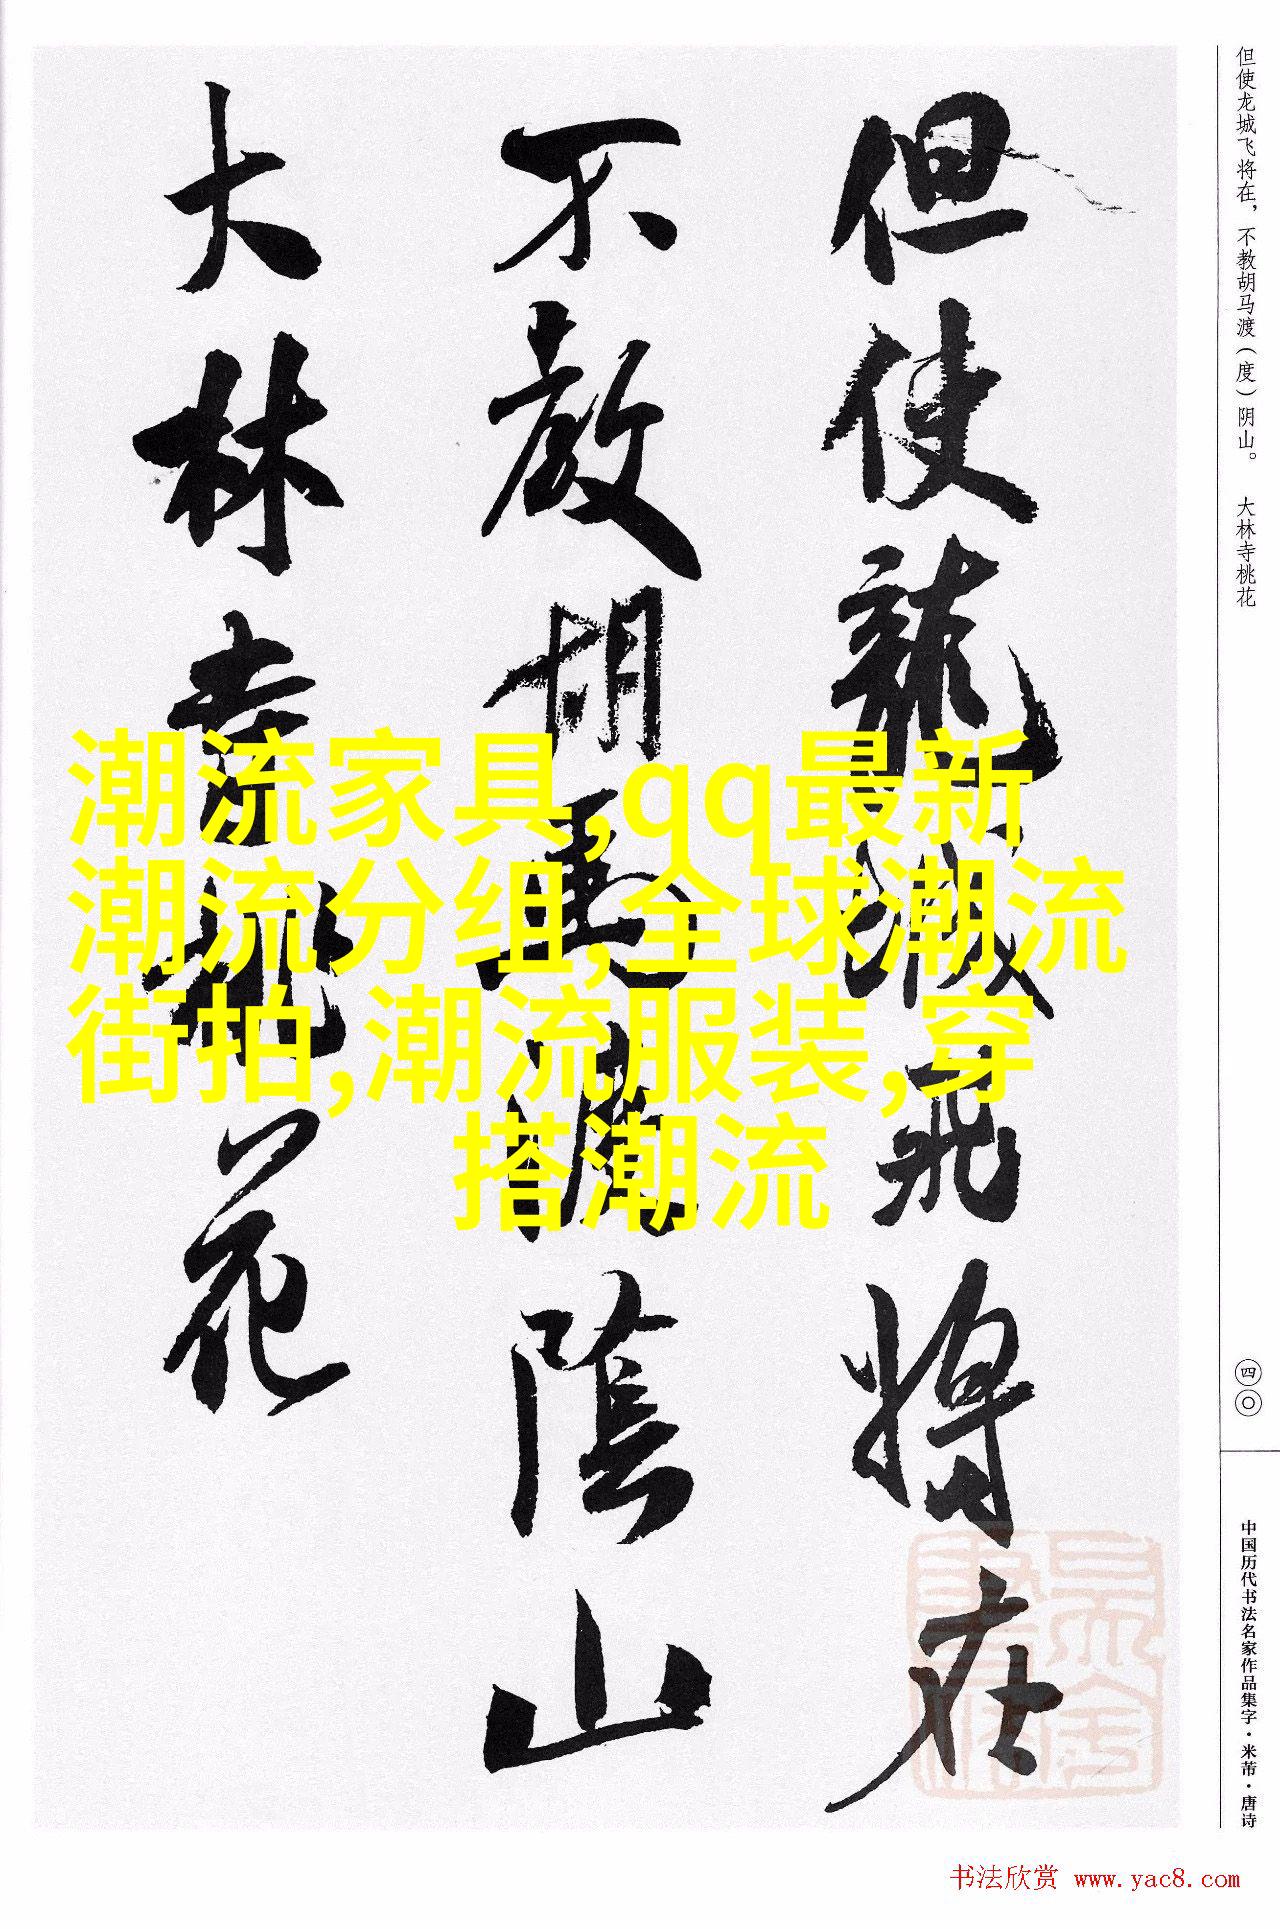 但使龍城飛將在
不教胡馬渡陰山
大林寺桃花
潮流家具,qq最新
潮流分组,全球潮流
街拍,潮流服装,穿
搭潮流
但使龙城飞将在，不教胡马渡（度）阴山。 大林寺桃花
四〇
中国历代书法名家作品集字·米芾·唐诗
书法欣赏 www.yac8.com